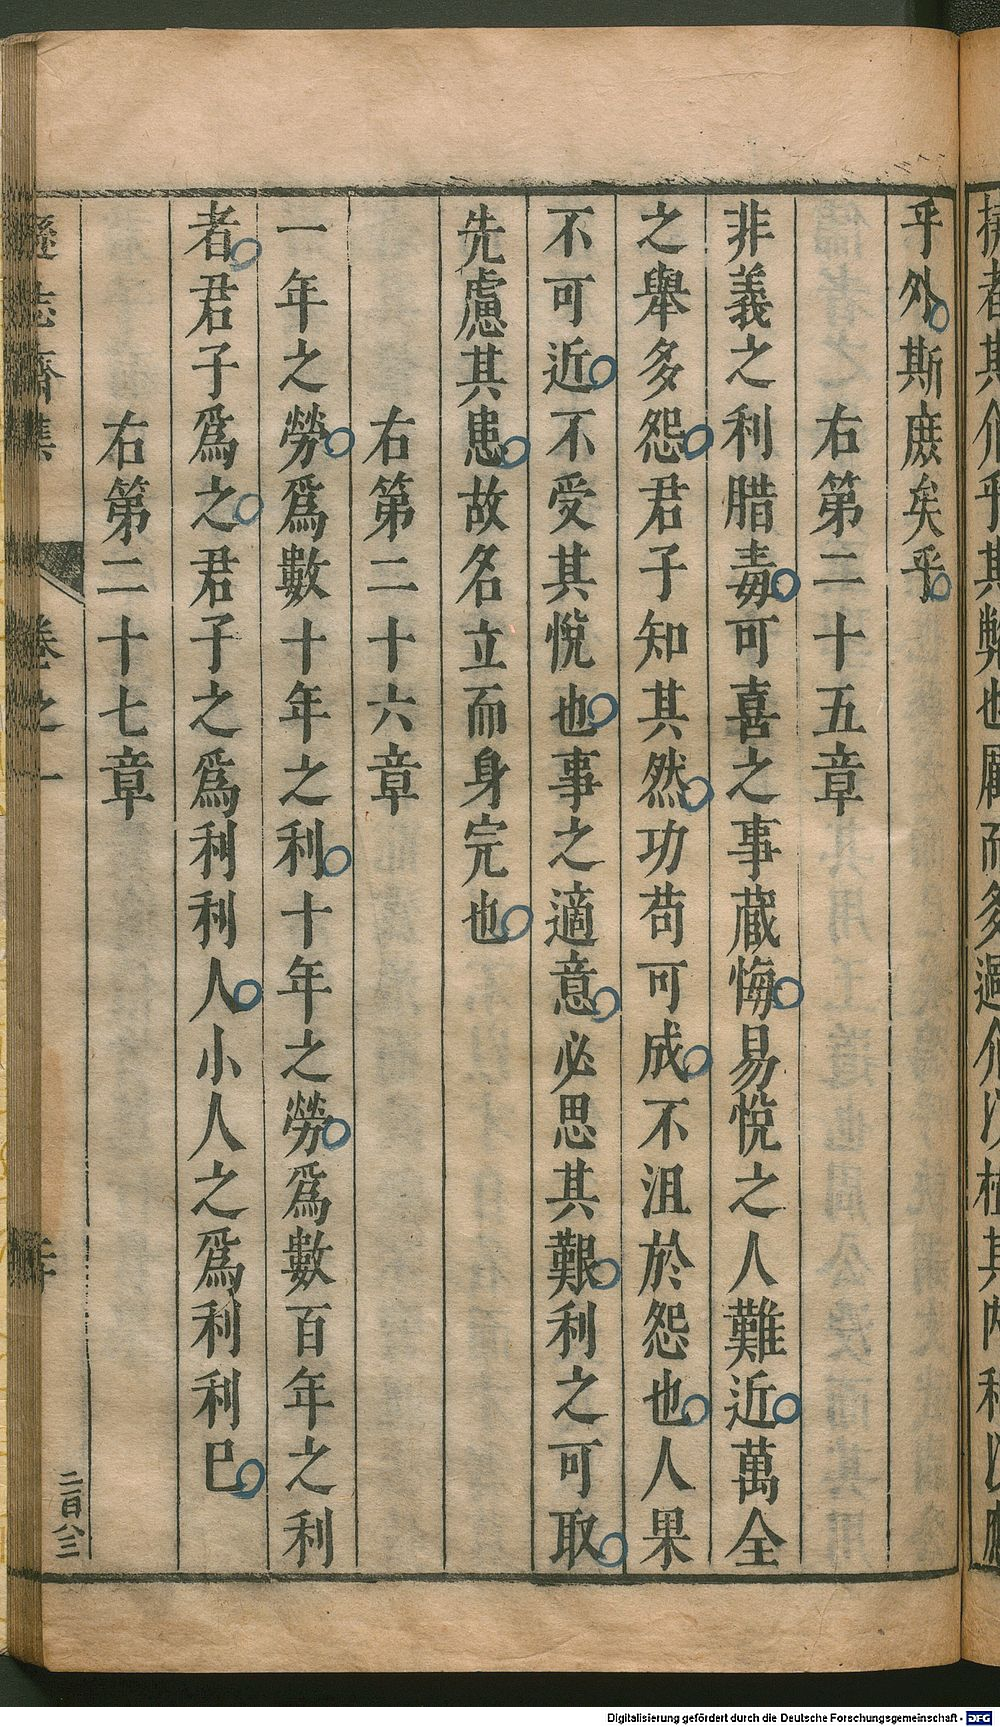 撫者其介乎其弊也厭而多過介汰柱其內利汰
乎外斯庶矣乎
右第二十五章
非義之利腊毒可喜之事蔵悔易悅之人難近萬全
之舉多怨君子知其然功苟可成不沮於怨也人果
不可近不受其悅也事之適意必思其艱利之可取
先慮其患故名立而身完也
右第二十六章
一年之勞爲數十年之利十年之勞爲數百年之利
者君子爲之君子之爲利利人小人之爲利利巳
右第二十七章
遜志齋集 卷之一 二百八三
Digitalisierung gefördert durch die Deutsche Forschungsgemeinschaft - DFG